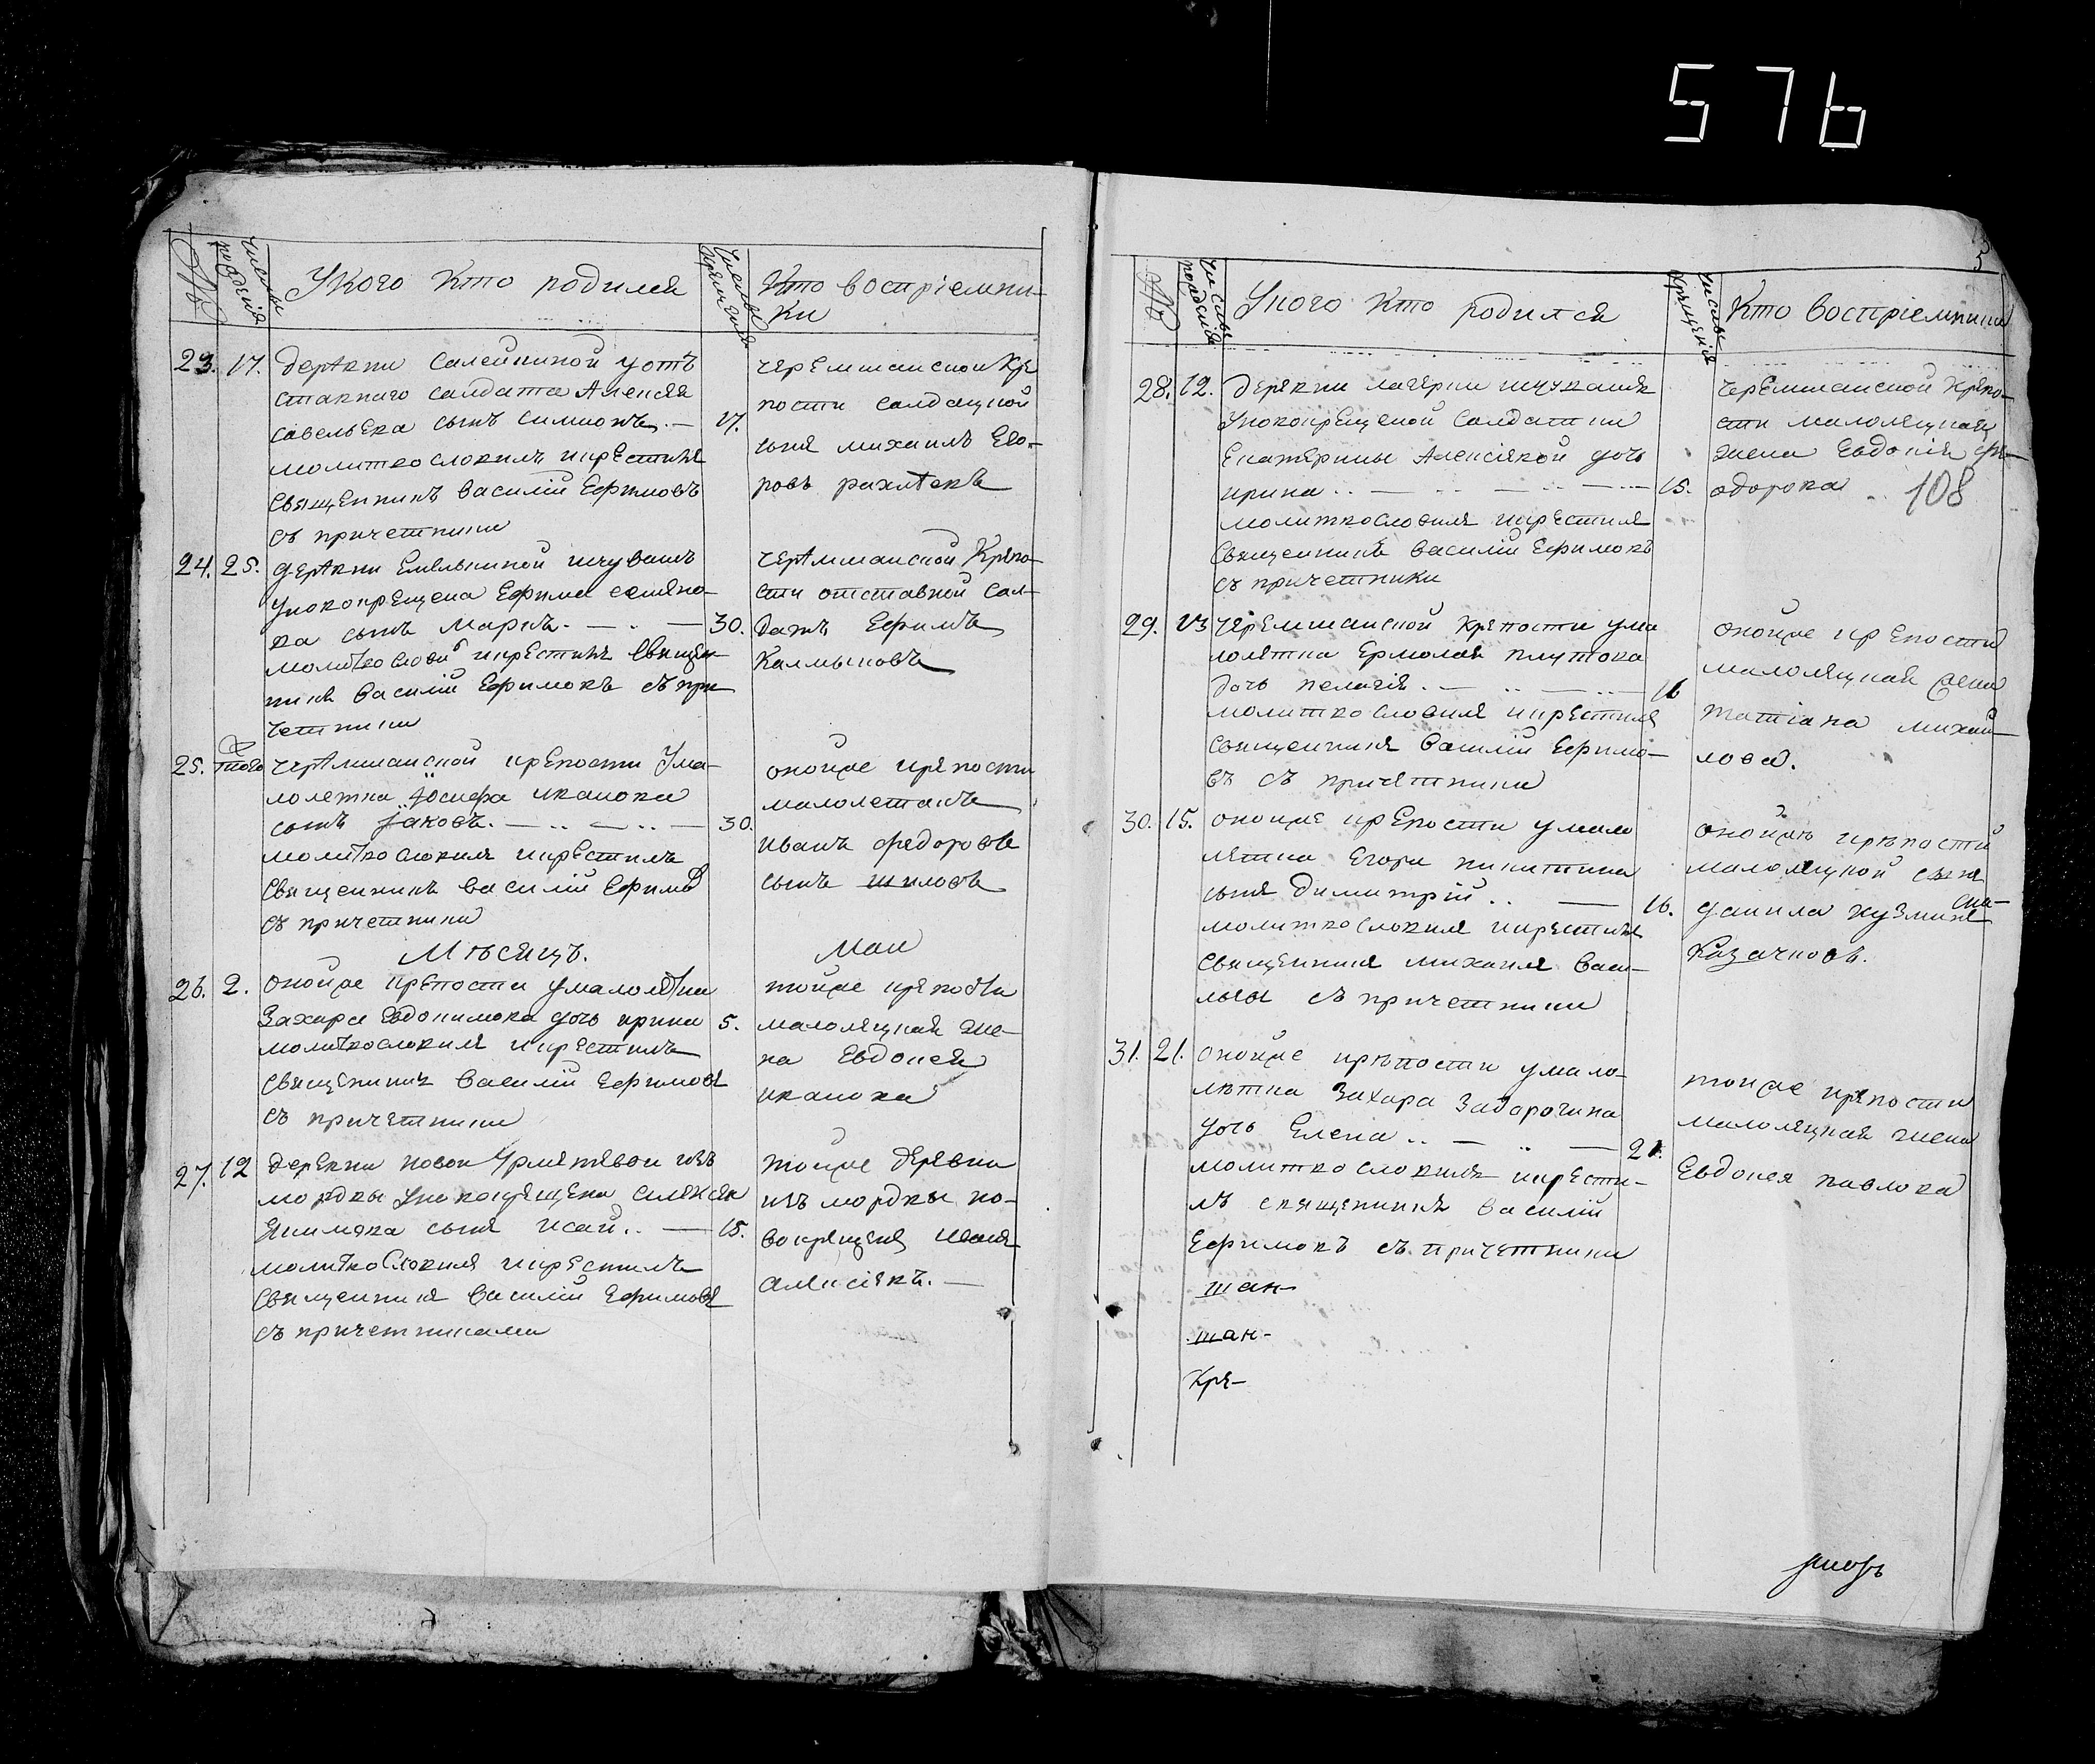 576
№
Числы рождения
У кого кто родился
Числы крещения
Кто воспріемни-
ки
23. 17. деревни Салейкиной у от
ставнаго салдата Алексея
савельева сынъ симионъ. — 17.
молитвословилъ и крестилъ
Священникъ Василій Ефимовъ
съ причетники
черемшанской кре
пости салдацкой
сынъ михаилъ Его-
ровъ
24. 25. деревни Емелькиной ис чувашъ
у новокрещена Ефима семено-
ва сынъ Маркъ. — . — 30.
молитвослови и крестилъ Священ-
никъ Василій Ефимовъ съ при
четники
черемшанской Крепо-
сти отставной сал-
датъ Ефимъ
Калмыковъ
25. того черемшанской крепости у ма-
лолетка Іосифа иванова
сынъ Іаковъ. — .. — .. — 30.
молитвословилъ и крестилъ
Священникъ Василій Ефимов
съ причетники
оной же крепости
малолетокъ
иванъ федоровъ
сынъ шиловъ
Мѣсяцъ. Маи
26. 2. оной же крепости у малолетка
Захара Евдокимова дочь ирина 5.
молитвословилъ и крестилъ
Священникъ Василій Ефимовъ
съ причетники
той же крепости
малолецкая же-
на Евдокея
иванова
27. 12 деревни новой Урметевой изъ
мордвы у новокрещена алексея
Якимова сынъ Исай.. — 15.
молитвословилъ и крестилъ
Священникъ Василій Ефимовъ
съ причетниками
той же деревни
изъ мордвы но-
вокрещенъ иванъ
алексіевъ. —
5
№
Числы рождения
У кого кто родился
Числы крещения
Кто воспріемники
28. 12. деревни лагерки ис чувашъ
у новокрещеной Салдатки
Екатерины Алексіевой дочь
ирина .. — .. — .. — 15.
молитвословилъ и крестилъ
Священникъ Василій Ефимовъ
съ причетники
Черемшанской крепо-
сти малолецкая
жена Евдокія фе-
одорова .. 108
29. 13 черемшанской крепости у ма
лолетка Ермолая плутова
дочь пелагія. — .. — .. — 16
молитвословилъ и крестилъ
Священникъ Василій Ефимо-
въ съ причетники
оной же крепости
малолецкая жена
татіана михай-
лова.
30. 15. оной же крепости у мало
летка Егора никитина
сынъ димитрій .. — 16.
молитвословилъ и крестилъ
Священникъ михаилъ Васи-
льевъ съ причетники
оной же крепости
малолецкой сынъ
данила кузминъ сы-
Казачковъ.
31. 21. оной же крѣпости у мало-
лѣтка Захара Задорогина
дочь Елена .. — .. — 21.
молитвословилъ и крести-
лъ священникъ Василій
Ефимовъ съ причетники
той же крепости
малолецкая жена
Евдокея павлова
шан-
шан-
Кре-